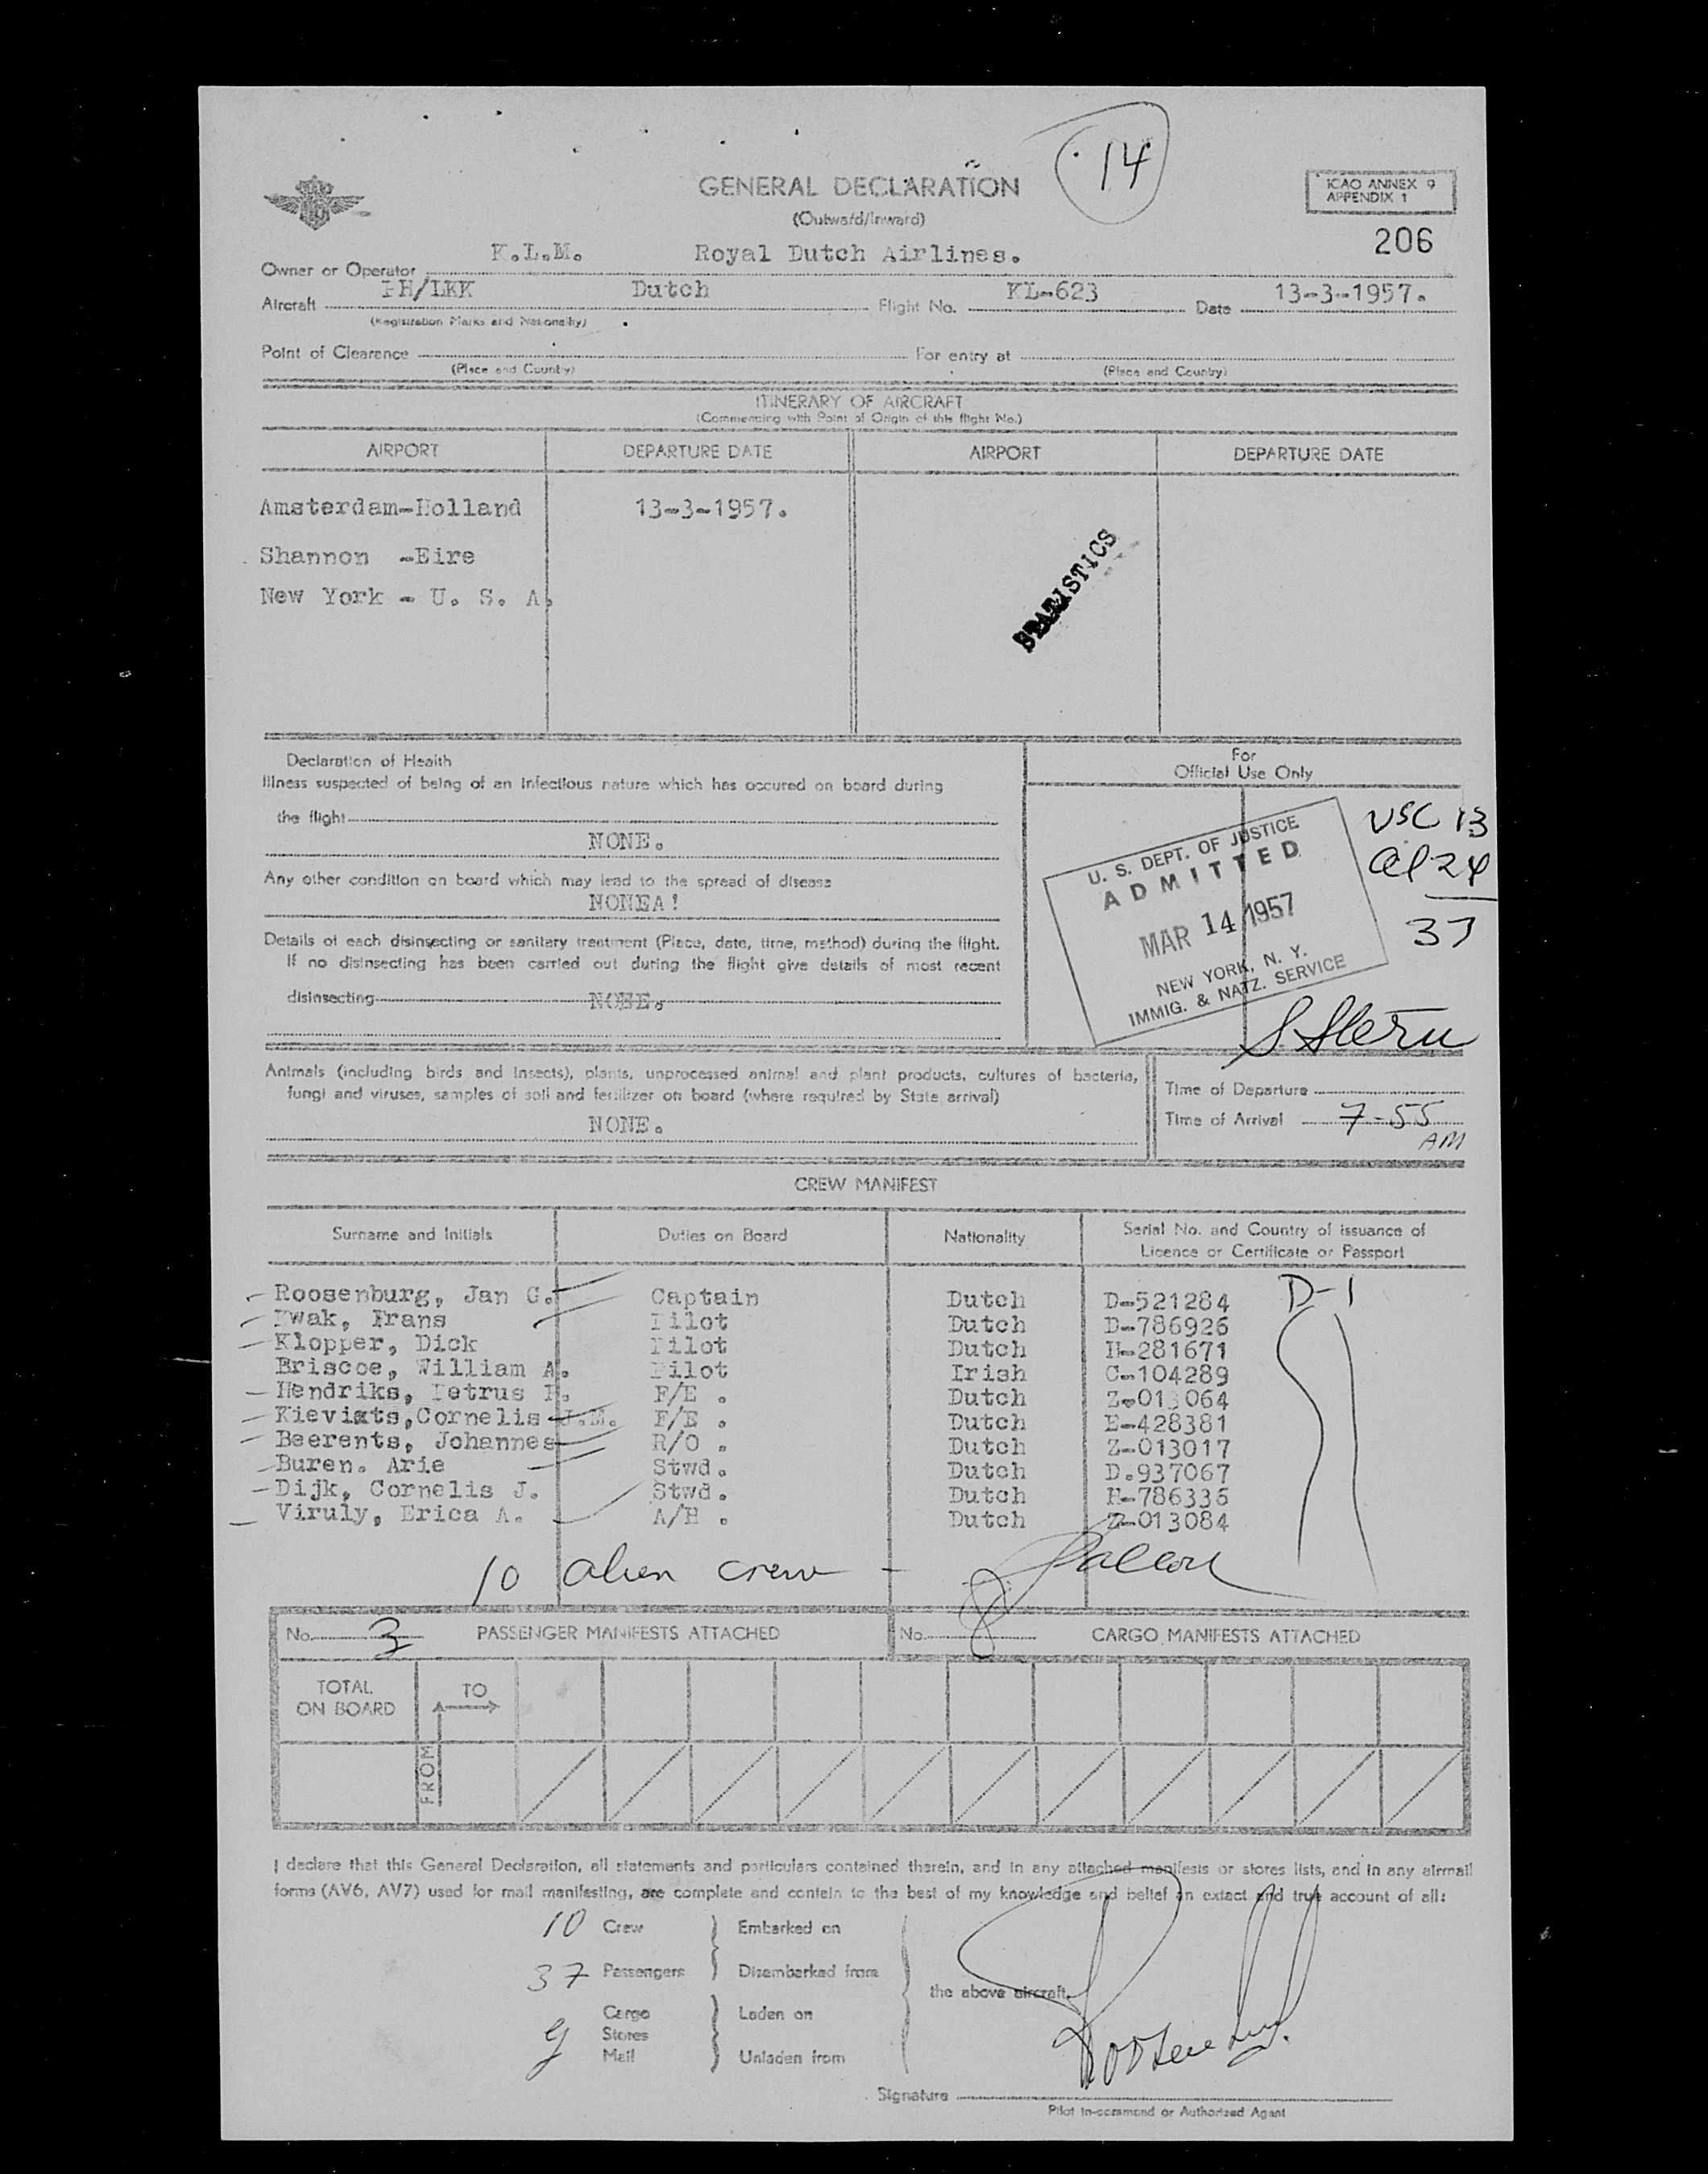 14
GENERAL DECLARATION
(Outward/Inward)
ICAO ANNEX 9
APPENDIX 1
206
Owner or Operator K.L.M. Royal Dutch Airlines.
Aircraft PH/LKK Dutch Flight No. KL-623 Date 13-3-1957.
(Registration Marks and Nationality)
Point of Clearence For entry at
(Place and Country) (Place and Country)
ITINERARY OF AIRCRAFT
(Commencing with Point of Origin of this flight No.)
AIRPORT DEPARTURE DATE AIRPORT DEPARTURE DATE
Amsterdam-Holland 13-3-1957.
Shannon -Eire
New York - U. S. A.
STATISTICS
Declaration of Health
Illness suspected of being of an infectious nature which has occured on board during
the flight
NONE.
Any other condition on board which may lead to the spread of disease
NONEA!
Details of each disinsecting or sanitary treatment (Place, date, time, method) during the flight.
If no disinsecting has been carried out during the flight give details of most recent
disinsecting NONE.
For
Official Use Only
U. S. DEPT. OF JUSTICE
ADMITTED
MAR 14 1957
NEW YORK, N. Y.
IMMIG. & NATZ. SERVICE
USC 13
al 24
37
S Stern
Animals (including birds and insects), plants, unprocessed animal and plant products, cultures of bacteria,
fungi and viruses, samples of soil and fertilizer on board (where required by State arrival)
NONE.
Time of Departure
Time of Arrival 7-55
AM
CREW MANIFEST
Surname and Initials Duties on Board Nationality Serial No. and Country of issuance of
Licence or Certificate or Passport
Roosenburg, Jan G. Captain Dutch D-521284 D-1
Kwak, Frans Pilot Dutch D-786926
Klopper, Dick Pilot Dutch H-281671
Briscoe, William A. Pilot Irish C-104289
Hendriks, Petrus P. F/E . Dutch Z-013064
Kieviets,Cornelis J.M. F/E . Dutch E-428381
Beerents, Johannes R/O . Dutch Z-013017
Buren. Arie Stwd. Dutch D.937067
Dijk, Cornelis J. Stwd. Dutch H-786336
Viruly, Erica A. A/H . Dutch Z-013084
10 alien crew -
No. 3 PASSENGER MANIFESTS ATTACHED No. CARGO MANIFESTS ATTACHED
TOTAL
ON BOARD
TO
FROM
I declare that this General Declaration, all statements and particulars contained therein, and in any attached manifests or stores lists, and in any airmail
forms (AV6, AV7) used for mail manifesting, are complete and contein to the best of my knowledge and belief an extact and true account of all:
10 Crew Embarked on
37 Passengers Disembarked from
the above aircraft.
Cargo Laden on
Stores
Mail Unladen from
Roosenburg.
Signature
Pilot in-command or Authorized Agent